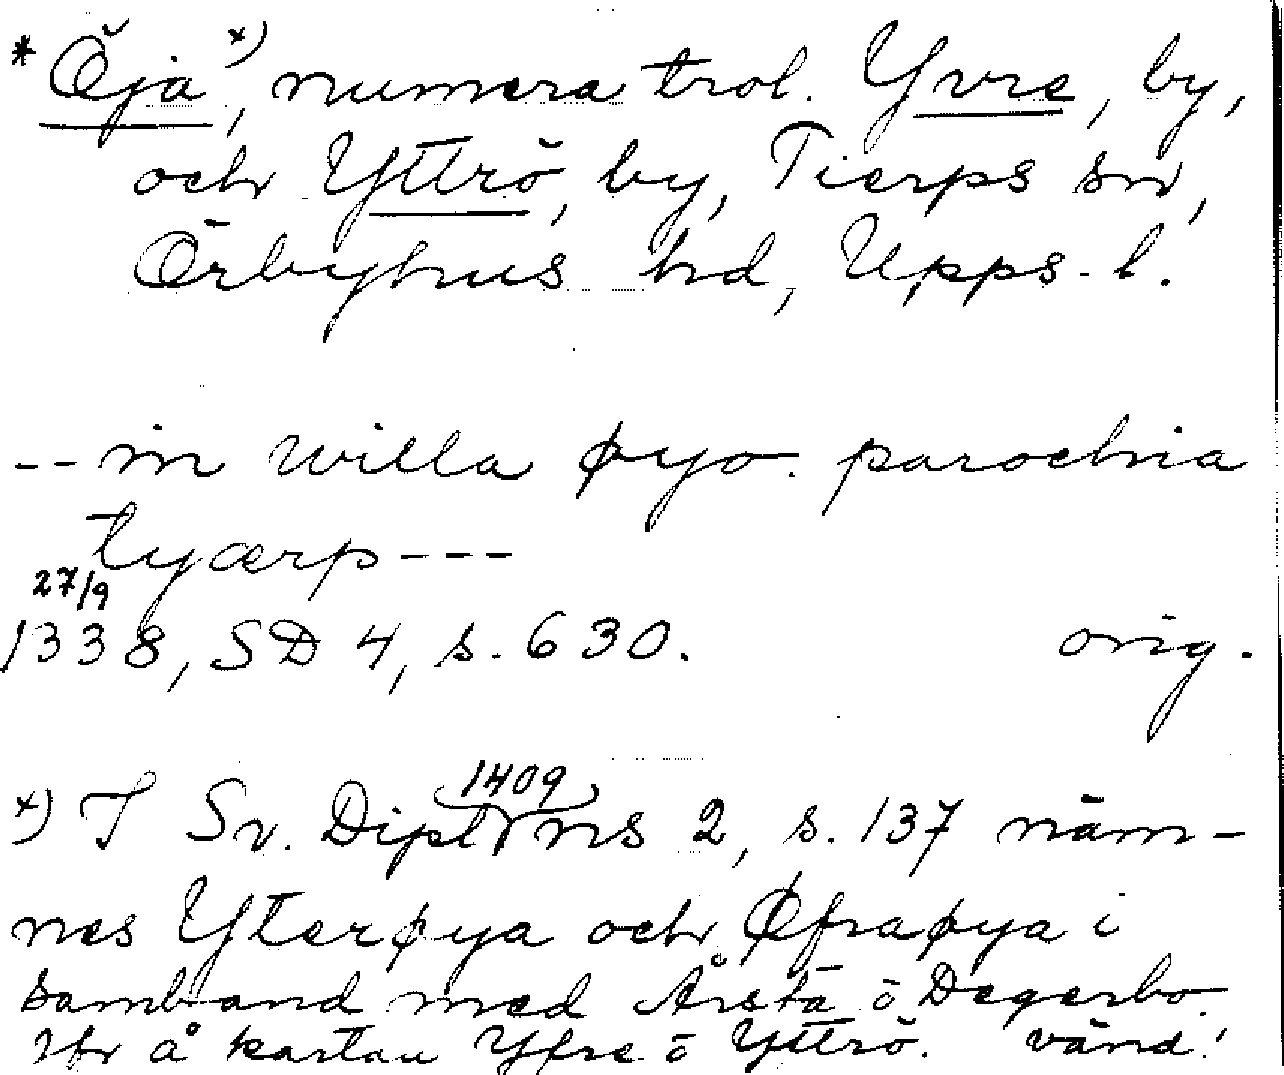 * Öja x), numera trol. Yvre, by,
och Yttrö, by, Tierps sn,
Örbyhus hd, Upps. l.
-- in willa øyo. parochia
tyærp ---
27/9
1338, SD 4, s. 630. orig.
x) I Sv. Dipl 1409 ns 2, s. 137 näm-
nes Yterøya och Øfraøya i
samband med Årsta o Degerbo.
Jfr å kartan Yfre o Yttrö. vänd!